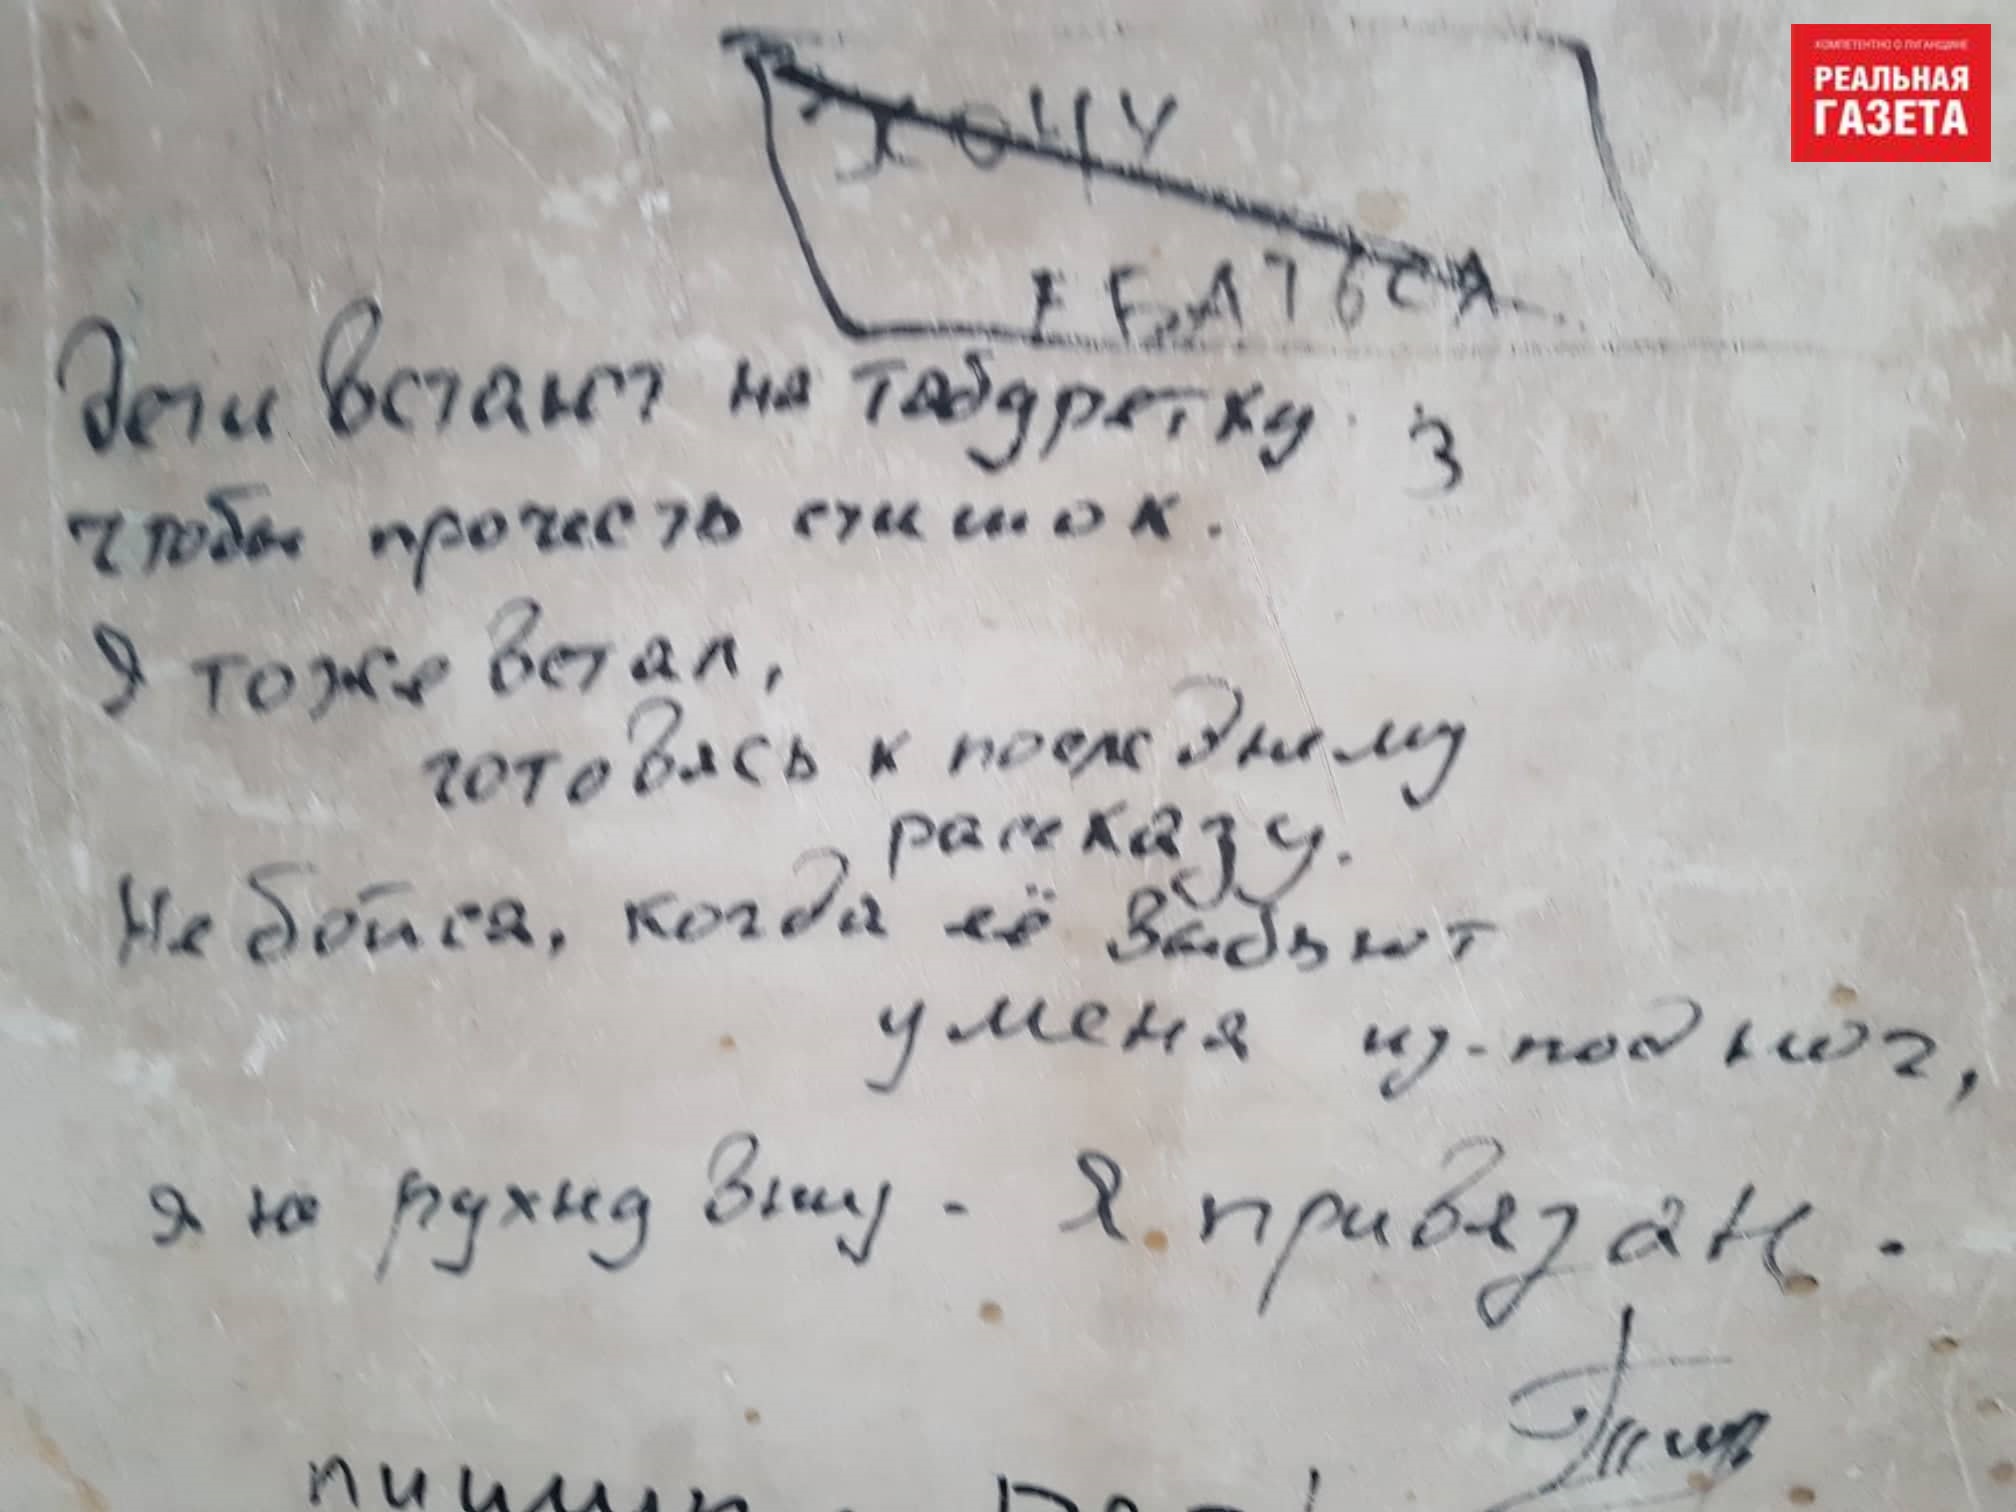 КОМПЕТЕНТНО О ЛУГАНЩИНЕ
РЕАЛЬНАЯ
ГАЗЕТА
ХОЧУ
ЕБАТЬСЯ
Дети встают на табуретку
З
чтобы прочесть стишок.
Я тоже встал,
готовясь к последнему
рассказу.
Не бойся, когда её выбьют
у меня из-под ног,
я не рухну вниз - Я привязан.